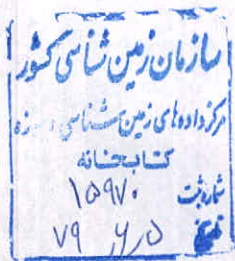 سازمان زمین شناسی کشور
مرکز داده های زمین
کتابخانه
شماره ثبت ۱۵۹۷۰
تاریخ ۷۹/۶/۵